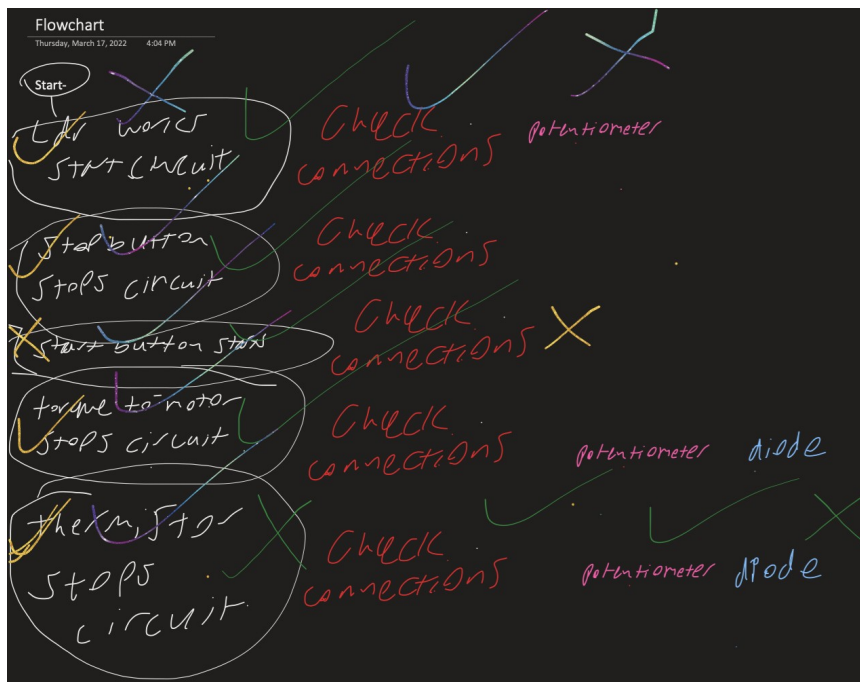 Flowchart
Thursday, March 17, 2022 4:04 PM
Start-
Ldr works
start circuit
Check
connections
potentiometer
Stop button
stops circuit
Check
connections
start button starts
Check
connections
torque to motor
stops circuit
Check
connections
potentiometer diode
thermistor
stops
circuit
Check
connections
potentiometer diode